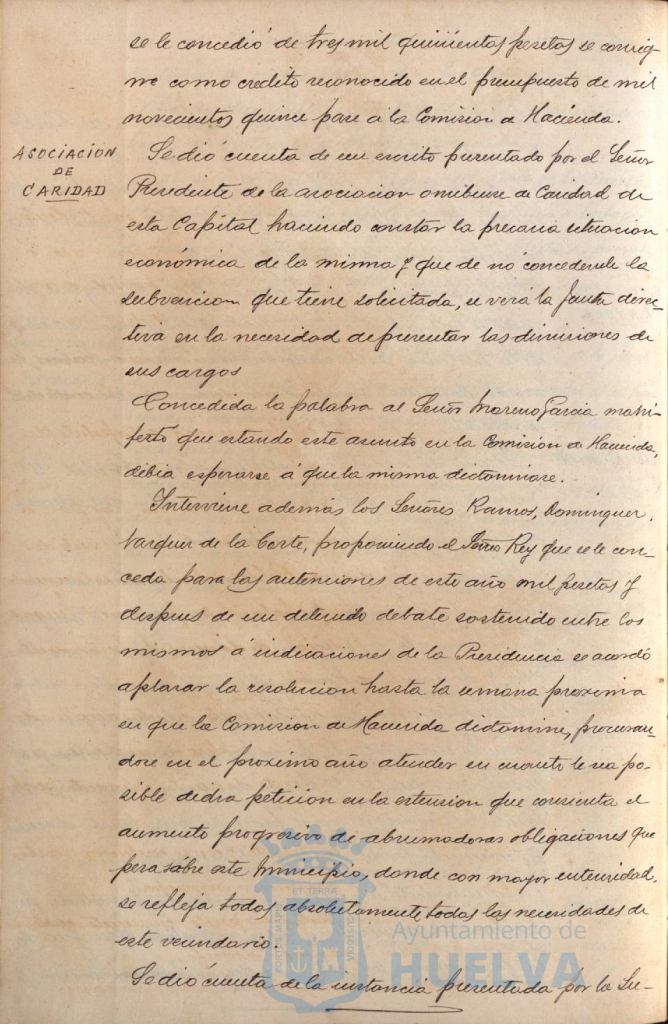 se le concedió de tres mil quinientas pesetas se consig-
ne como credito reconocido en el presupuesto de mil
novecientos quince pase á la Comision de Hacienda.
ASOCIACION
DE
CARIDAD
Se dió cuenta de un escrito presentado por el Señor
Presidente de la asociacion onubense de Caridad de
esta Capital haciendo constar la precaria situacion
económica de la misma y que de nó concedersele la
subvencion que tiene solicitada, se verá la Junta direc-
tiva en la necesidad de presentar las dimisiones de
sus cargos
Concedida la palabra al Señor Moreno Garcia mani-
festó que estando este asunto en la Comision de Hacienda,
debia esperarse á que la misma dictaminase.
Interviene además los Señores Ramos, Dominguez,
Vazquez de la Corte, proponiendo el Señor Rey que se le con-
ceda para las atenciones de este año mil pesetas y
despues de un detenido debate sostenido entre los
mismos á indicaciones de la Presidencia se acordó
aplazar la resolucion hasta la semana proxima
en que la Comision de Hacienda dictamine, procuran-
dose en el proximo año atender en cuanto le sea po-
sible dicha peticion en la extension que consienta el
aumento progresivo de abrumadoras obligaciones que
pesa sobre este Municipio, donde con mayor intensidad,
se refleja todas absolutamente todas las necesidades de
este vecindario.
Se dió cuenta de la instancia presentada por la Su-
Ayuntamiento de
HUELVA